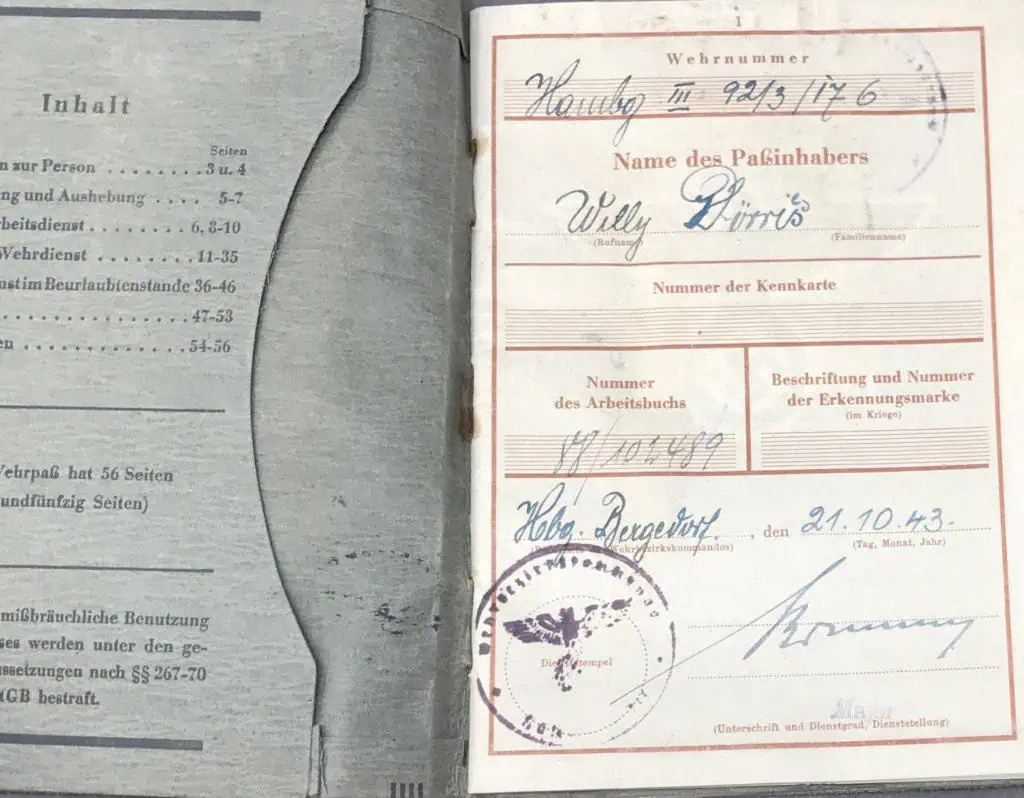 Inhalt
Seiten
n zur Person . . . . . . . . 3 u. 4
ng und Aushebung . . . . 5-7
beitsdienst . . . . . . . . 6, 8-10
Wehrdienst . . . . . . . . 11-35
nst im Beurlaubtenstande 36-46
. . . . . . . . . . . . . . . . 47-53
en . . . . . . . . . . . . . 54-56
Wehrpaß hat 56 Seiten
undfünfzig Seiten)
mißbräuchliche Benutzung
ses werden unter den ge-
ssetzungen nach §§ 267-70
tGB bestraft.
1
Wehrnummer
Hambg III 92/3/17 6
Name des Paßinhabers
Willy Dörris
(Rufname) (Familienname)
Nummer der Kennkarte
Nummer
des Arbeitsbuchs
88/102489
Beschriftung und Nummer
der Erkennungsmarke
(im Kriege)
Hbg. Bergedorf, den 21.10.43.
Wehrbezirkskommandos) (Tag, Monat, Jahr)
Wehrbezirkskommando
Dienststempel
Major
(Unterschrift und Dienstgrad, Dienststellung)